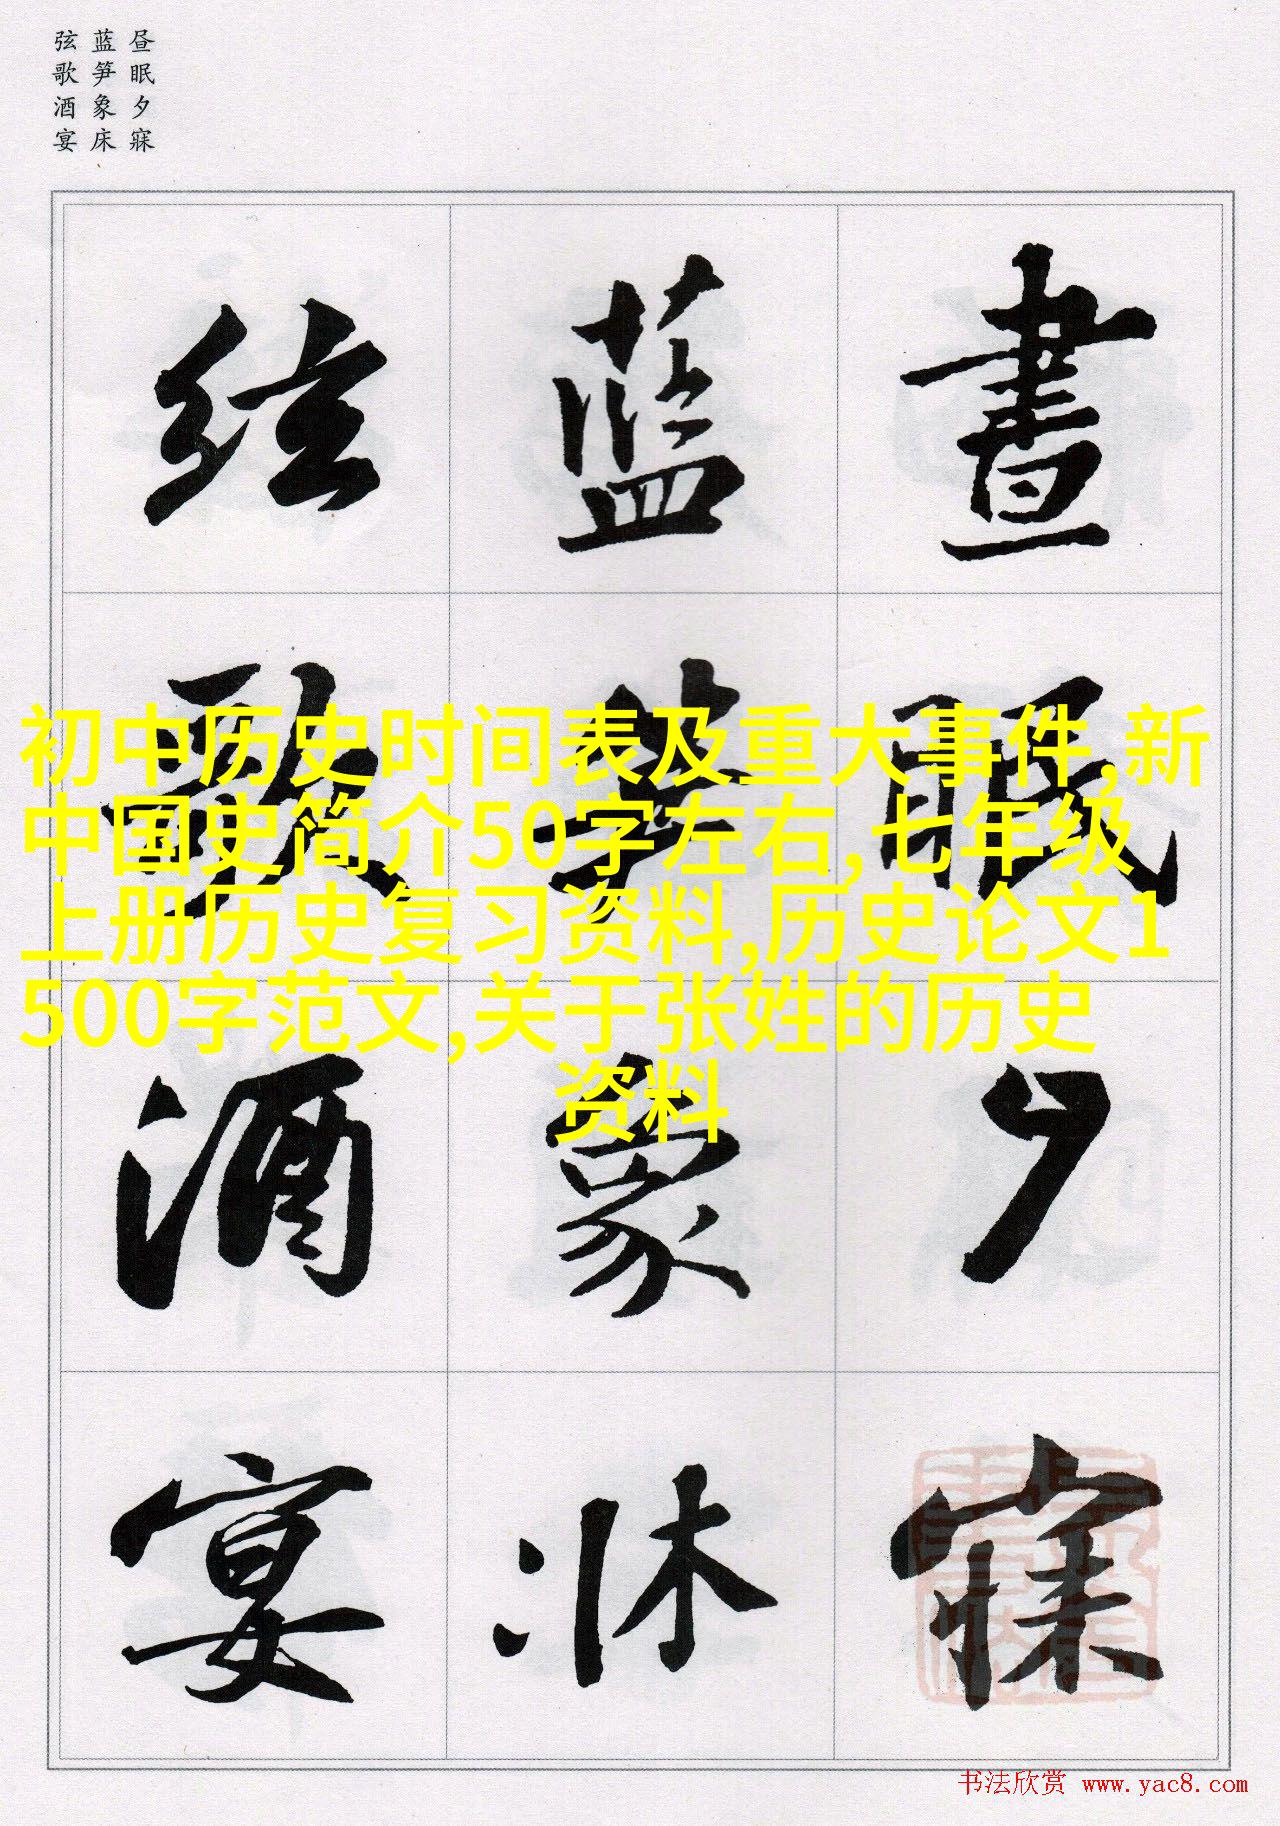 昼眠夕寐
蓝笋象床
弦歌酒宴
晝眠夕寐
藍笋象牀
弦歌酒宴
初中历史时间表及重大事件,新
中国史简介50字左右,七年级
上册历史复习资料,历史论文1
500字范文,关于张姓的历史
资料
书法欣赏 www.yac8.com